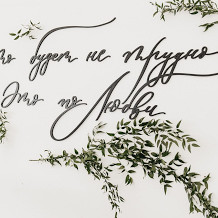 то будет не трудно
Это по Любви